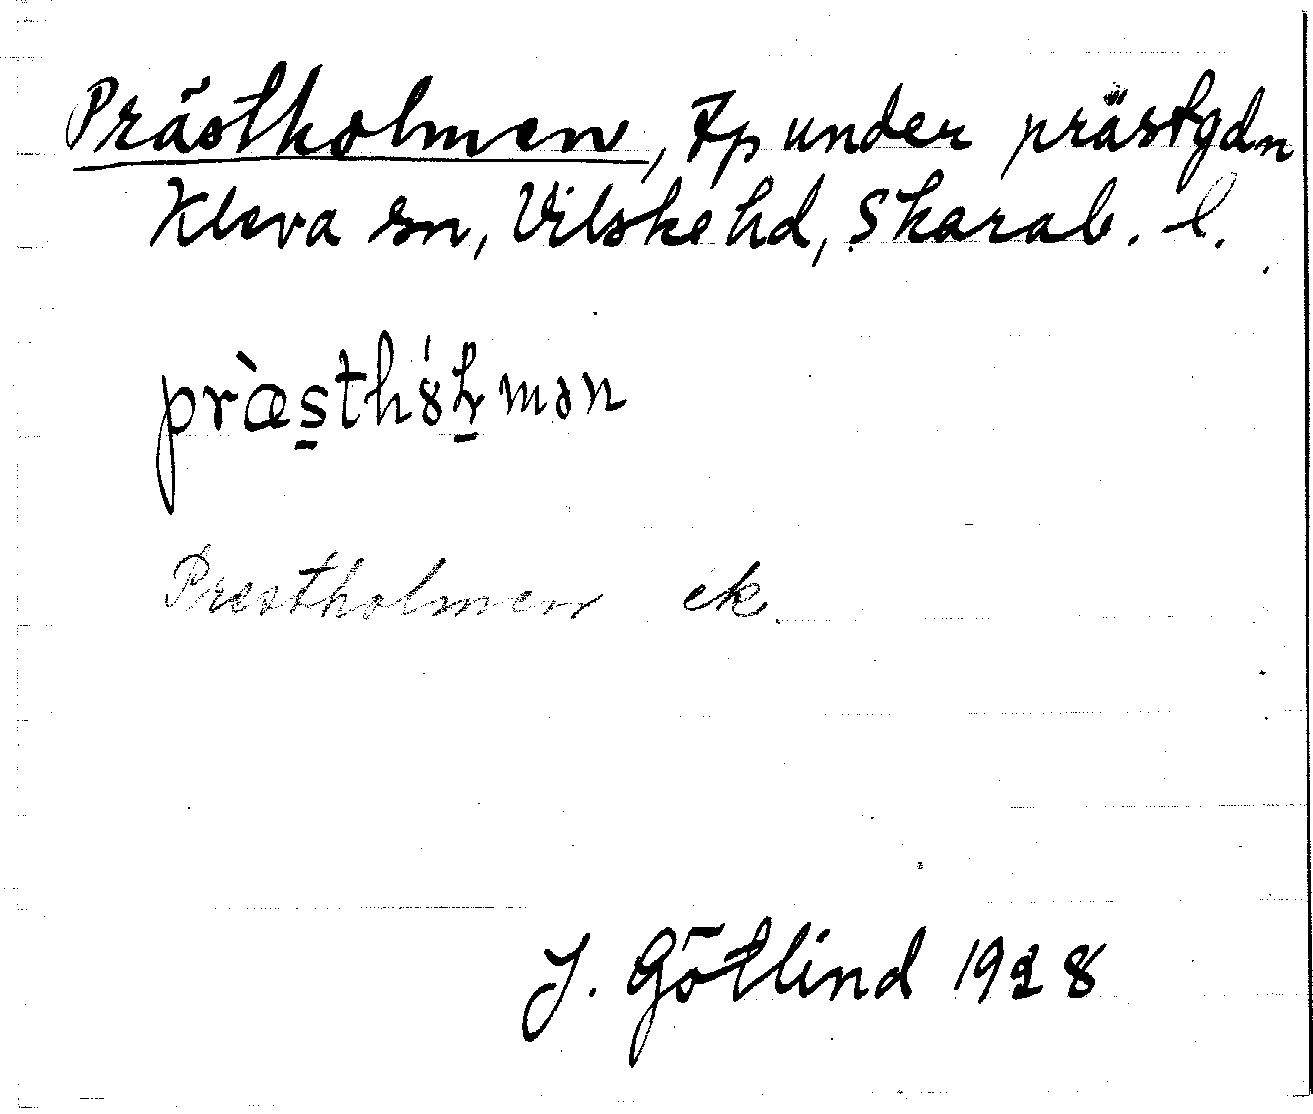 Prästholmen, tp under prästgdn
Kleva sn, Vilske hd, Skarab. l.
præ̀s̠thȣ́ɫ̠mən
Prestholmen ek.
J. Götlind 1928